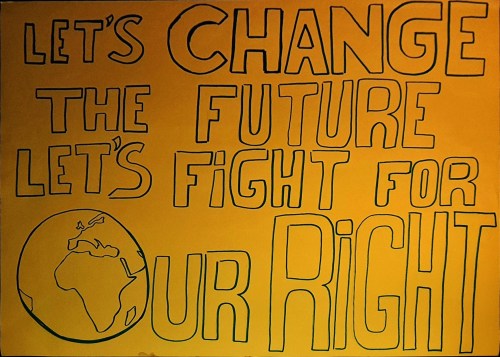 LET'S CHANGE
THE FUTURE
LET'S FiGHT FOR
OUR RiGHT